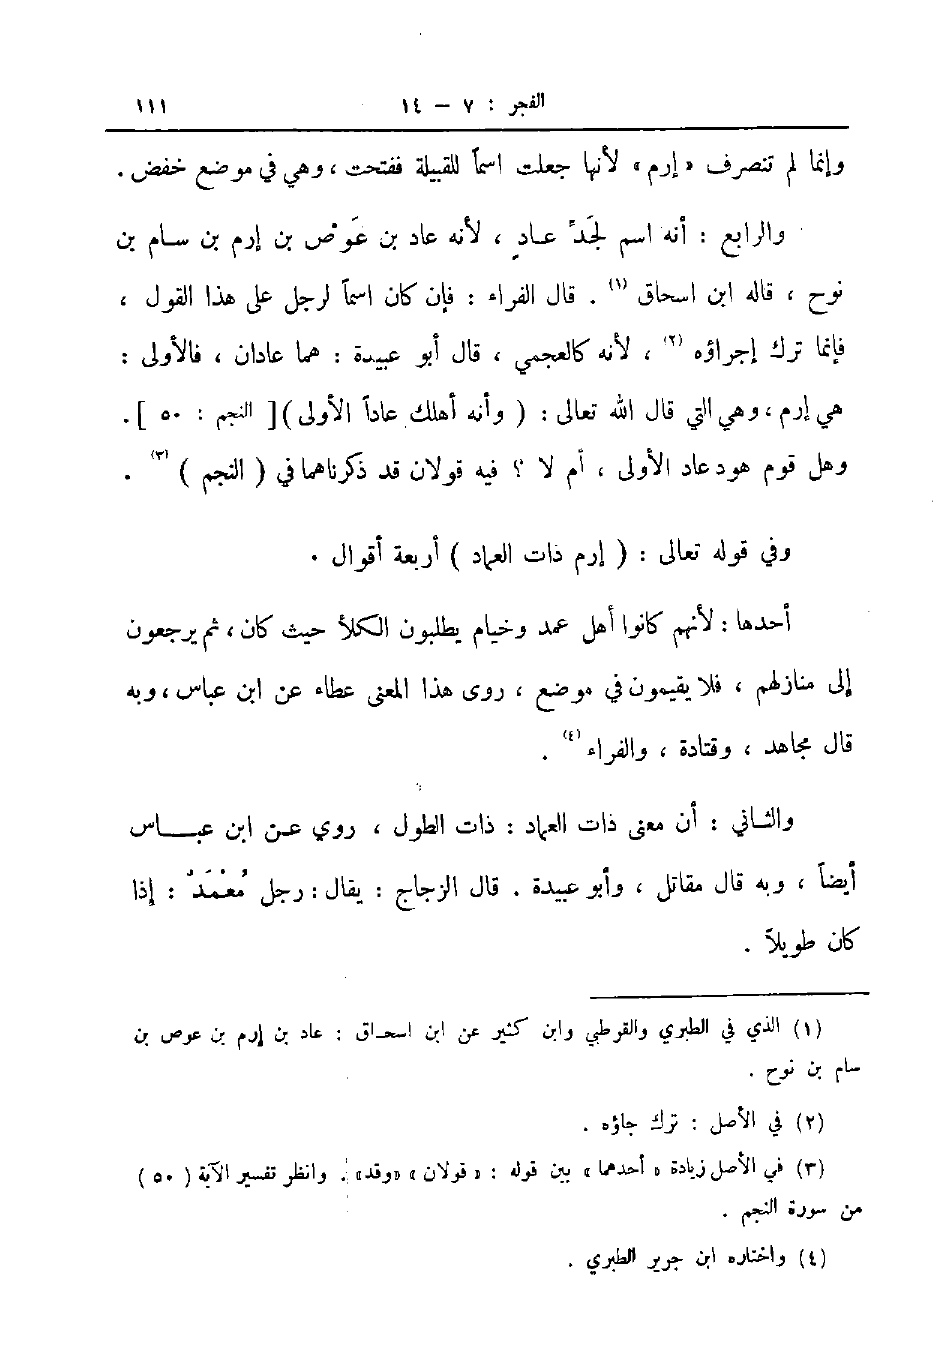 الفجر : ٧ – ١٤ ١١١
وإنما لم تنصرف « إرم » لأنها جعلت اسماً للقبيلة ففتحت ، وهي في موضع خفض .
والرابع : أنه اسم لجَدِّ عادٍ ، لأنه عاد بن عَوْص بن إرم بن سام بن
نوح ، قاله ابن اسحاق (١) . قال الفراء : فإن كان اسماً لرجل على هذا القول ،
فإنما ترك إجراؤه (٢) ، لأنه كالعجمي ، قال أبو عبيدة : هما عادان ، فالأولى :
هي إرم ، وهي التي قال الله تعالى : ( وأنه أهلك عاداً الأولى ) [ النجم : ٥٠ ] .
وهل قوم هود عاد الأولى ، أم لا ؟ فيه قولان قد ذكرناهما في ( النجم ) (٣) .
وفي قوله تعالى : ( إرم ذات العماد ) أربعة أقوال .
أحدها : لأنهم كانوا أهل عمد وخيام يطلبون الكلأ حيث كان ، ثم يرجعون
إلى منازلهم ، فلا يقيمون في موضع ، روى هذا المعنى عطاء عن ابن عباس ، وبه
قال مجاهد ، وقتادة ، والفراء (٤) .
والثاني : أن معنى ذات العماد : ذات الطول ، روي عن ابن عباس
أيضاً ، وبه قال مقاتل ، وأبو عبيدة . قال الزجاج : يقال : رجل مُعْمَدٌ : إذا
كان طويلاً .
(١) الذي في الطبري والقرطبي وابن كثير عن ابن اسحاق : عاد بن إرم بن عوص بن
سام بن نوح .
(٢) في الأصل : ترك جاؤه .
(٣) في الأصل زيادة « أحدهما » بين قوله : « قولان » «وقد» . وانظر تفسير الآية ( ٥٠ )
من سورة النجم .
(٤) واختاره ابن جرير الطبري .